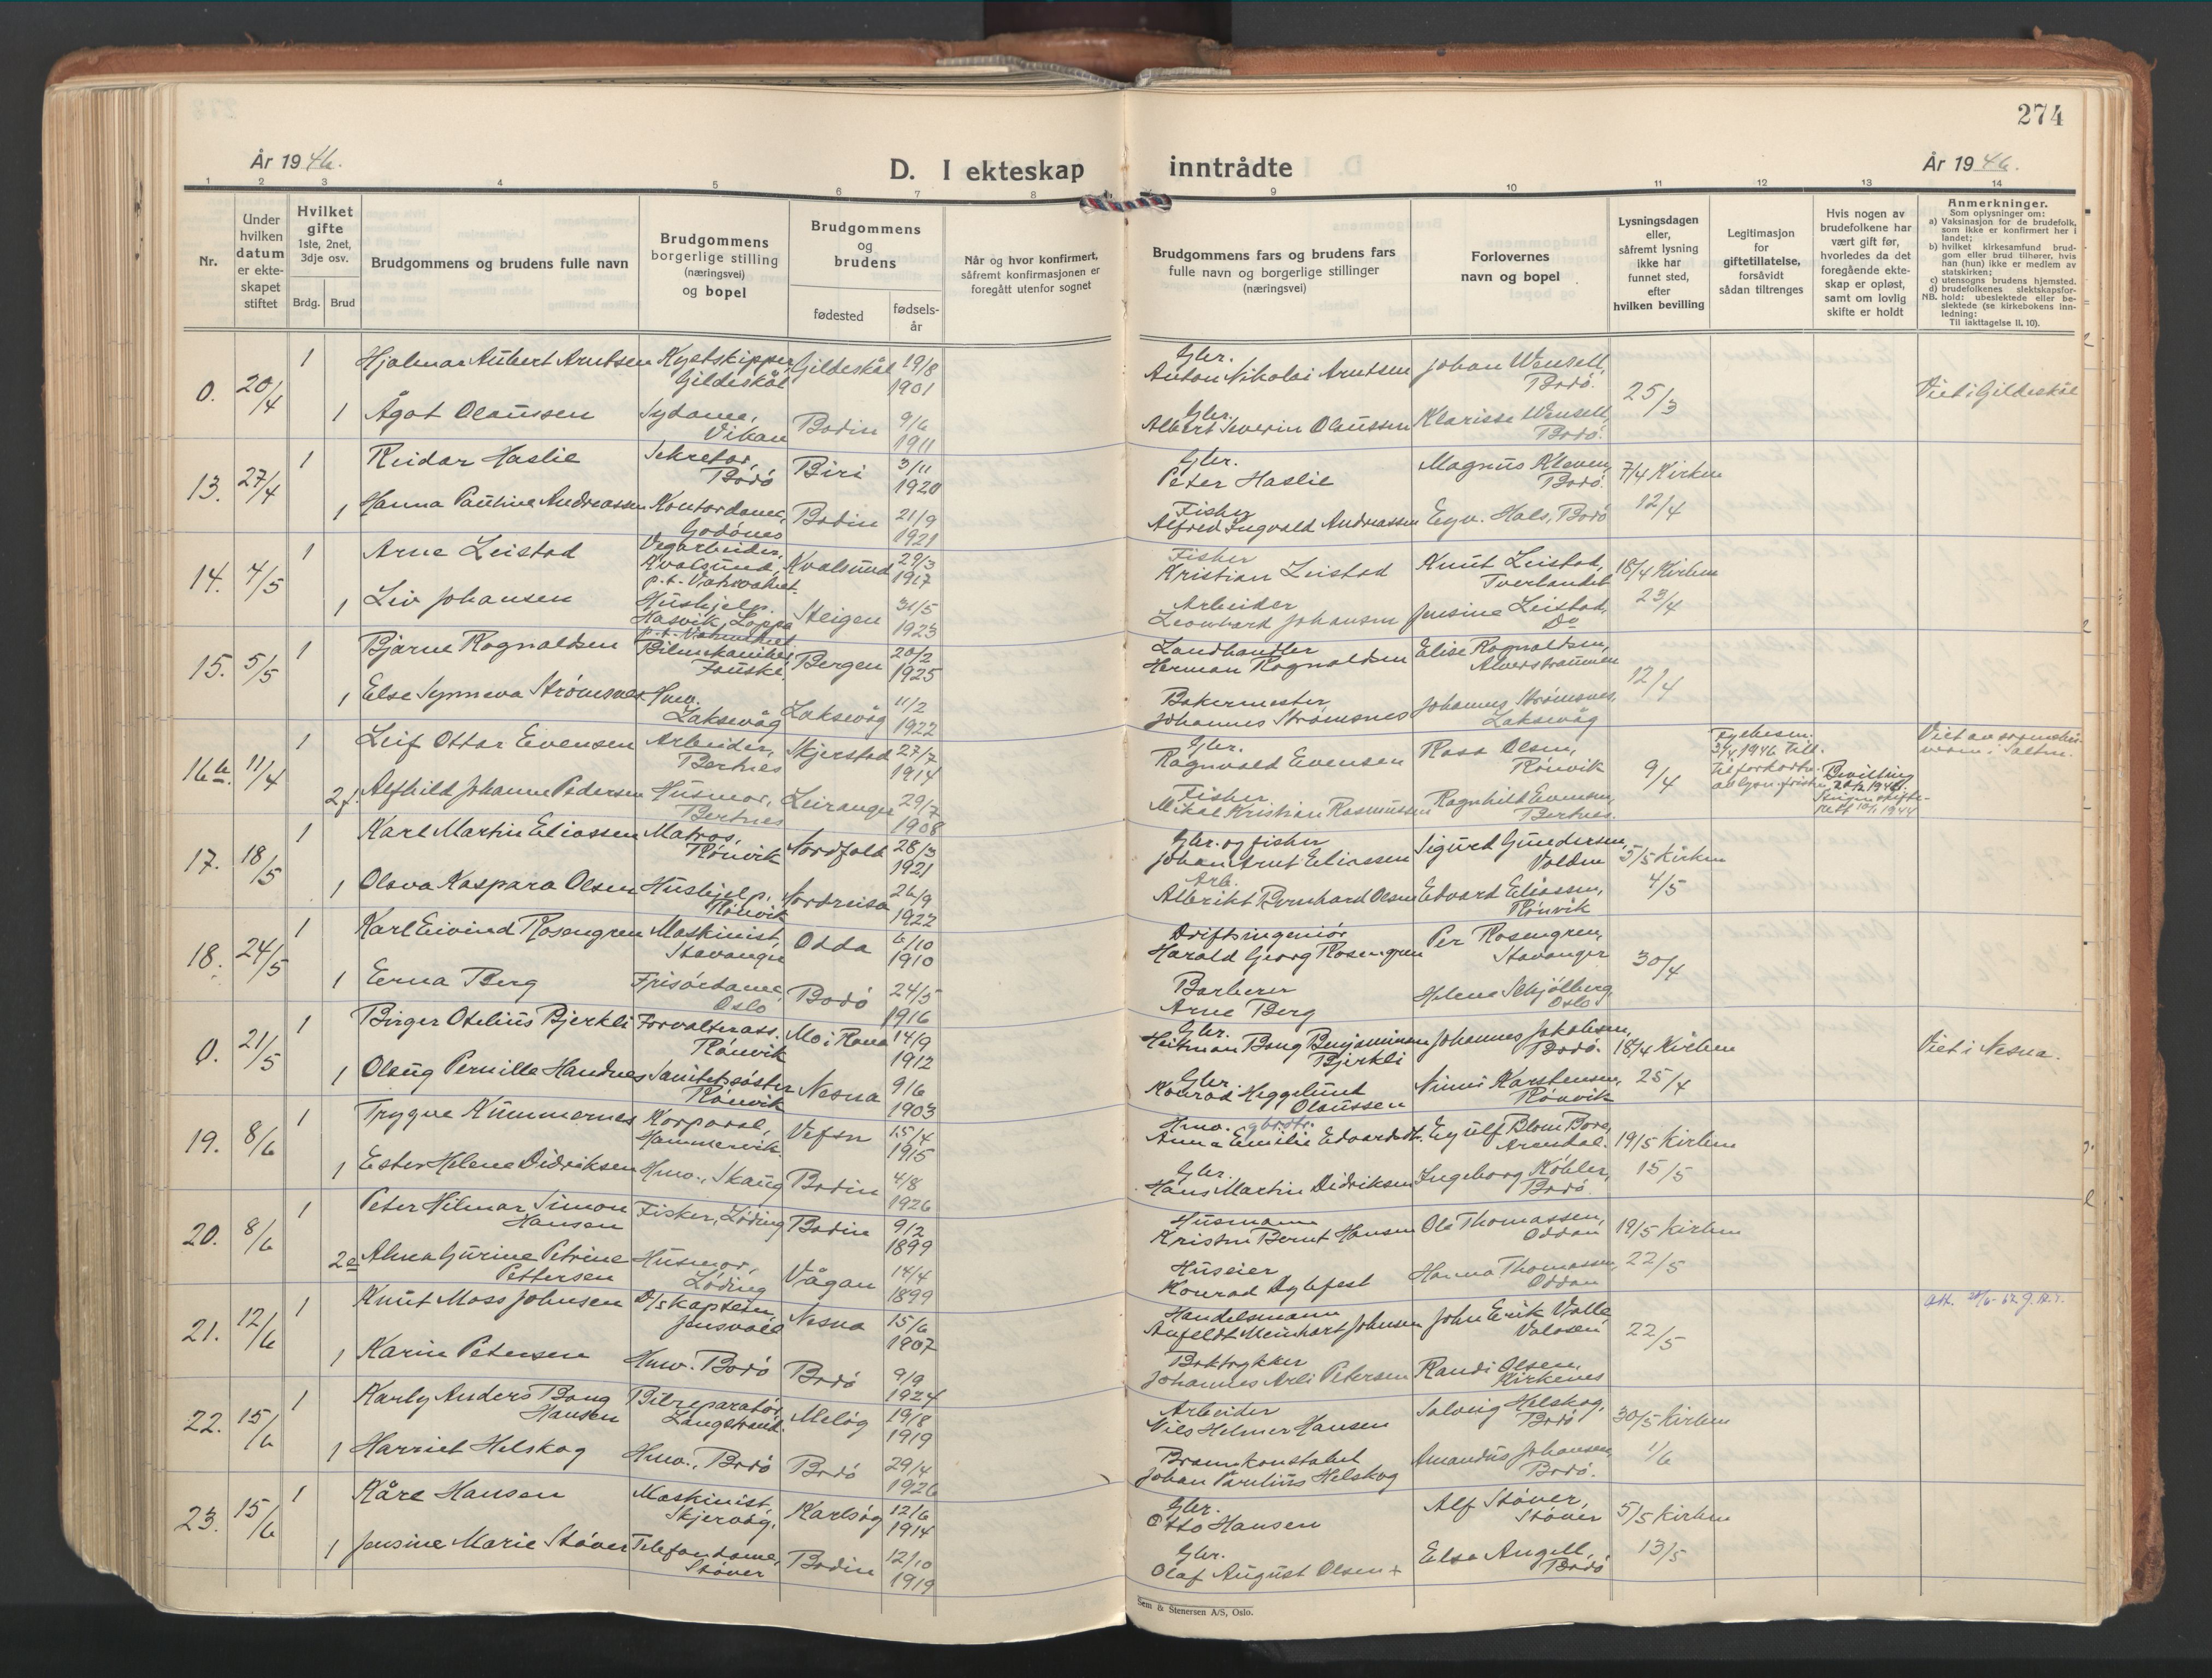 274
År 1946.
D. I ekteskap inntrådte
År 1946.
1 2 3 4 5 6 7 8 9 10 11 12 13 14
Nr.
Under
hvilken
datum
er ekte-
skapet
stiftet
Hvilket
gifte
1ste, 2net,
3dje osv.
Brdg. Brud
Brudgommens og brudens fulle navn
Brudgommens
borgerlige stilling
(næringsvei)
og bopel
Brudgommens
og
brudens
fødested
fødsels-
år
Når og hvor konfirmert,
såfremt konfirmasjonen er
foregått utenfor sognet
Brudgommens fars og brudens fars
fulle navn og borgerlige stillinger
(næringsvei)
Forlovernes
navn og bopel
Lysningsdagen
eller,
såfremt lysning
ikke har
funnet sted,
efter
hvilken bevilling
Legitimasjon
for
giftetillatelse,
forsåvidt
sådan tiltrenges
Hvis nogen av
brudefolkene har
vært gift før,
hvorledes da det
foregående ekte-
skap er opløst,
samt om lovlig
skifte er holdt
Anmerkninger.
Som oplysninger om:
a) Vaksinasjon for de brudefolk,
som ikke er konfirmert her i
landet;
b) hvilket kirkesamfund brud-
gom eller brud tilhører, hvis
han (hun) ikke er medlem av
statskirken;
c) utensogns brudens hjemsted.
d) brudefolkenes slektskapsfor-
NB. hold: ubeslektede eller be-
slektede (se kirkebokens inn-
ledning:
Til iakttagelse II. 10).
0. 20/4 1 Hjalmar Aubert Arntsen Kystskipper, Gildeskål Gildeskål 19/8 1901 Gbr. Anton Nikolai Arntsen Johan Wensell, Bodö. 25/3 Viet i Gildeskål
1 Ågot Olaussen Sydame, Vikan Bodin 9/6 1911 Gbr. Albert Severin Olaussen Klarisse Wensell, Bodö.
13. 27/4 1 Reidar Haslie Sekretær, Bodö Biri 3/11 1920 Gbr. Peter Haslie Magnus Kleven, Bodö. 7/4 Kirken
1 Hanna Pauline Andreassen Kontordame, Godönes Bodin 21/9 1921 Fisker Alfred Ingvald Andreassen Eyv. Hals, Bodö 12/4
14. 4/5 1 Arne Leistad Vegarbeider, Kvalsund, p.t. Vatnvatnet Kvalsund 29/3 1917 Fisker Kristian Leistad Knut Leistad, Tverlandet 18/4 Kirken
1 Liv Johansen Hushjelp. Hasvik, Loppa Steigen 31/5 1923 Arbeider Leonhard Johansen Jensine Leistad, Do 23/4
15. 5/5 1 Bjarne Rognaldsen Bilmekaniker, Fauske. Bergen 20/2 1925 Landhandler Herman Rognaldsen Elise Rognaldsen, Alverstraumen 12/4
1 Else Synneva Strömsnes Hmv. Laksevåg Laksevåg 11/2 1922 Bakermester Johannes Strömsnes Johannes Strömsnes, Laksevåg
16. 11/4 1 Leif Ottar Evensen Arbeider, Bertnes Skjerstad 27/7 1914 Gbr. Ragnvald Evensen Rasa Olsen, Rönvik 9/4
2 f. Alfhild Johanne Pedersen Husmor, Bertnes Leiranger 29/7 1908 Fisker Mikal Kristian Rasmussen Ragnhild Evensen, Bertnes.
17. 18/5 1 Karl Martin Eliassen Matros, Rönvik Nordfold 28/3 1921 Gbr. og fisker Johan Arnt Eliassen Sigurd Gundersen, Valdm 5/5 Kirken
1 Olava Kaspara Olsen Hushjelp, Rönvik Nordreisa 26/9 1922 Arb. Albrikt Bernhard Olsen Edvard Eliassen, Rönvik 4/5
18. 24/5 1 Karl Eivind Rosengren Maskinist, Stavanger Odda 6/10 1910 Driftsingeniör Harald Georg Rosengren Per Rosengren, Stavanger 30/4
1 Erna Berg Frisördame, Oslo Bodö 24/5 1916 Barberer Arne Berg Helene Schjölberg, Oslo
0. 21/5 1 Birger Otelius Bjerkli Forvalterass. Rönvik Mo i Rana 14/9 1912 Gbr. Heitman Bang Benjaminsen Bjerkli Johannes Jakobsen, Bodö. 18/4 Kirken Viet i Nesna.
1 Olaug Pernille Handnes Sanitetssöster Rönvik Nesna 9/6 1903 Gbr. Konrad Heggelund Olaussen Ninni Karstensen, Rönvik 25/4
19. 8/6 1 Trygve Kummernes Korporal, Hammervik. Vefsn 15/4 1915 Hmv. gbrdtr. Anna Emilie Edvardsd. Eyulf Blom Bore, Arendal. 19/5 Kirken
1 Ester Helene Didriksen Hmv., Skaug Bodin 4/8 1926 Gbr. Hans Martin Didriksen Ingeborg Köhler, Bodö 15/5
20. 8/6 1 Peter Hilmar Simon Hansen Fisker, Löding Bodin 9/2 1899 Husmann Kristen Bernt Hansen Ole Thomassen, Oddan 19/5 Kirken
2 e Alma Gurine Petrine Pettersen Husmor, Löding Vågan 14/4 1899 Huseier Konrad Dybfest Hanna Thomassen, Oddan 22/5
21. 12/6 1 Knut Moss Johnsen D/s kaptein, Jensvoll Nesna 15/6 1907 Handelsmann Anfeldt Meinhart Johnsen John Erik Valle, Valosen 22/5
1 Karin Petersen Hmv. Bodö Bodö 9/9 1924 Boktrykker Johannes Arli Petersen Randi Olsen, Kirkenes
22. 15/6 1 Karly Anders Bang Hansen Bilreparatör, Langstrand. Melöy 19/8 1919 Arbeider Nils Helmer Hansen Solveig Helskog, Bodö 30/5 Kirken
1 Harriet Helskog Hmv., Bodö Bodö 29/4 1926 Brannkonstabel Johan Paulius Helskog Amandus Johansen, Bodö. 1/6
23. 15/6 1 Kåre Hansen Maskinist, Skjervöy, Karlsöy 12/6 1914 Gbr. Otto Hansen Alf Stöver, Stöver 5/5 Kirken
1 Jensine Marie Stöver Telefondame, Stöver Bodin 12/10 1919 Gbr. Olaf August Olsen + Else Angell, Bodö 13/5
Sem & Stenersen A/S, Oslo.